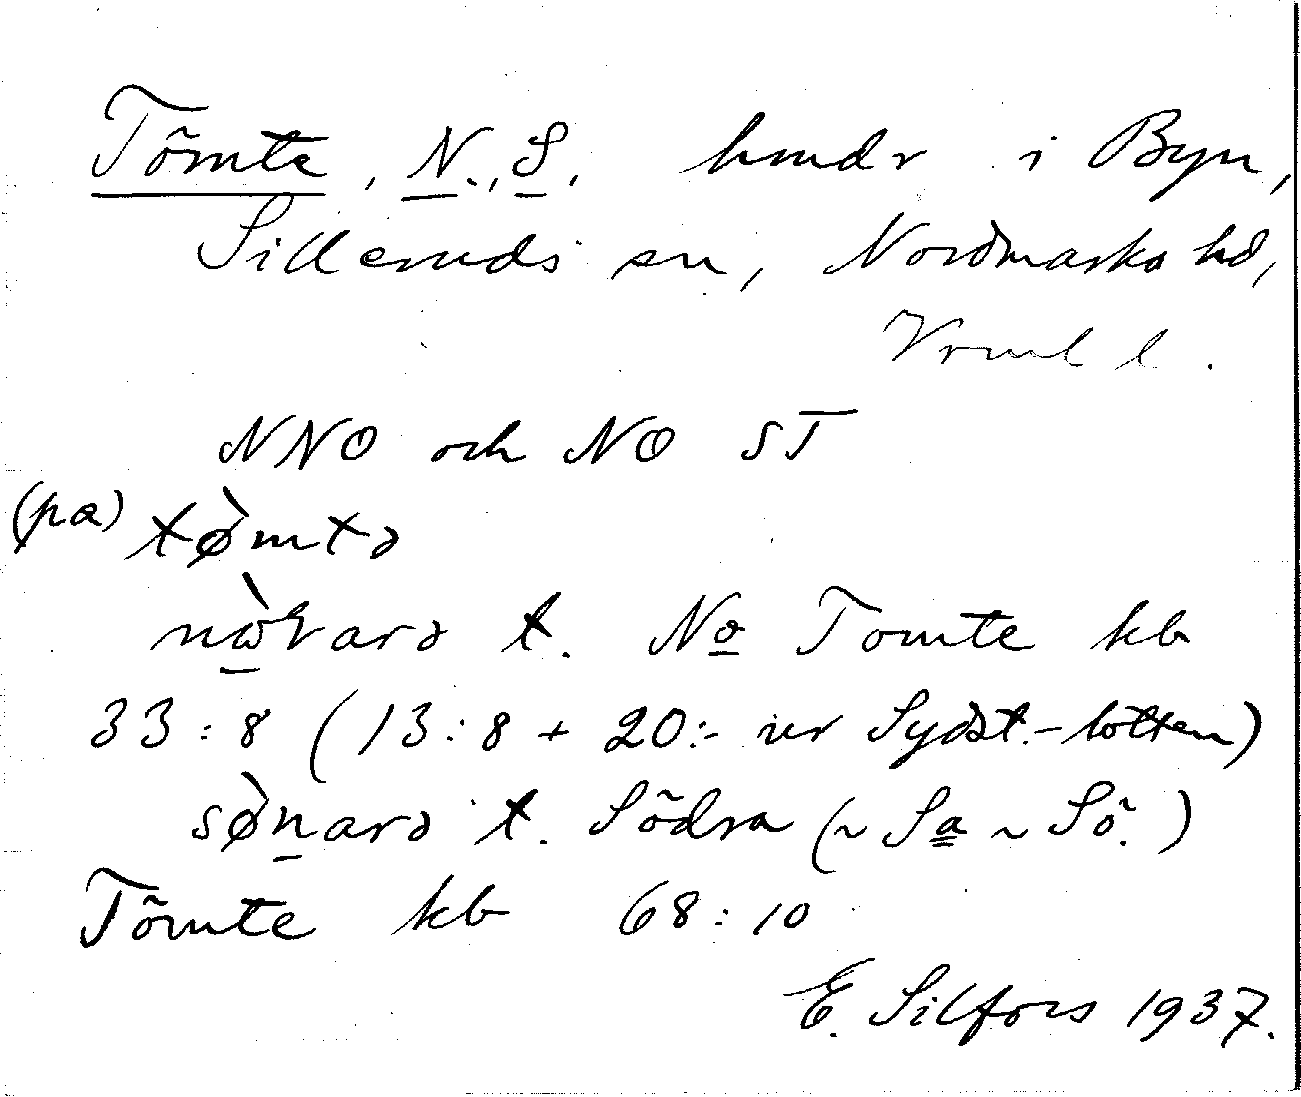 Tömte, N., S. hmdr i Byn,
Silleruds sn, Nordmarks hd,
Vrml l.
NNO och NO ST
(pa) tømtə
nωrarə t. No Tomte kb
33:8 (13:8 + 20:- ur Sydst.-lotten)
sønarə t. Södra (~ Sa ~ Sö.)
Tömte kb 68:10
E. Silfors 1937.